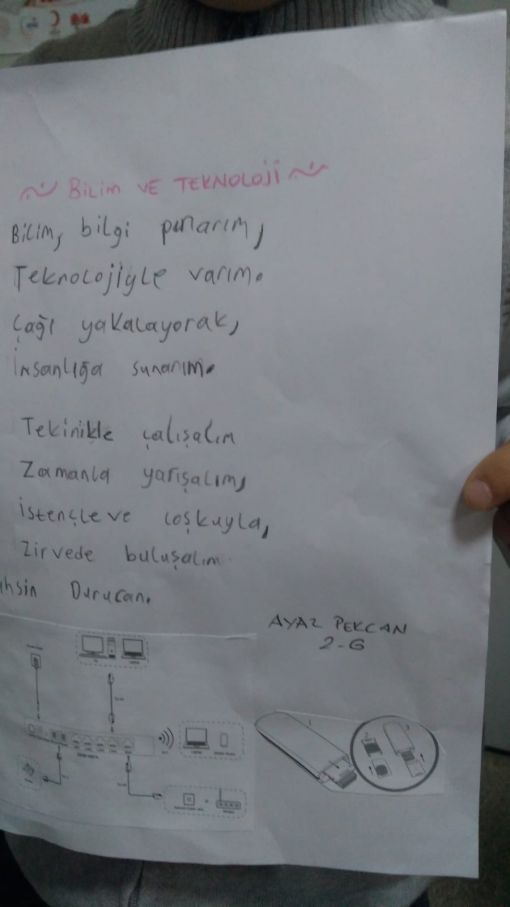 BİLİM VE TEKNOLOJİ
Bilim, bilgi pınarım,
Teknolojiyle varım.
çağı yakalayorak,
insanlığa sunarım.
Tekinikle çalışalım
Zamanla yarışalım,
istençle ve coşkuyla,
Zirvede buluşalım.
ahsin Durucan.
AYAZ PEKCAN
2-G